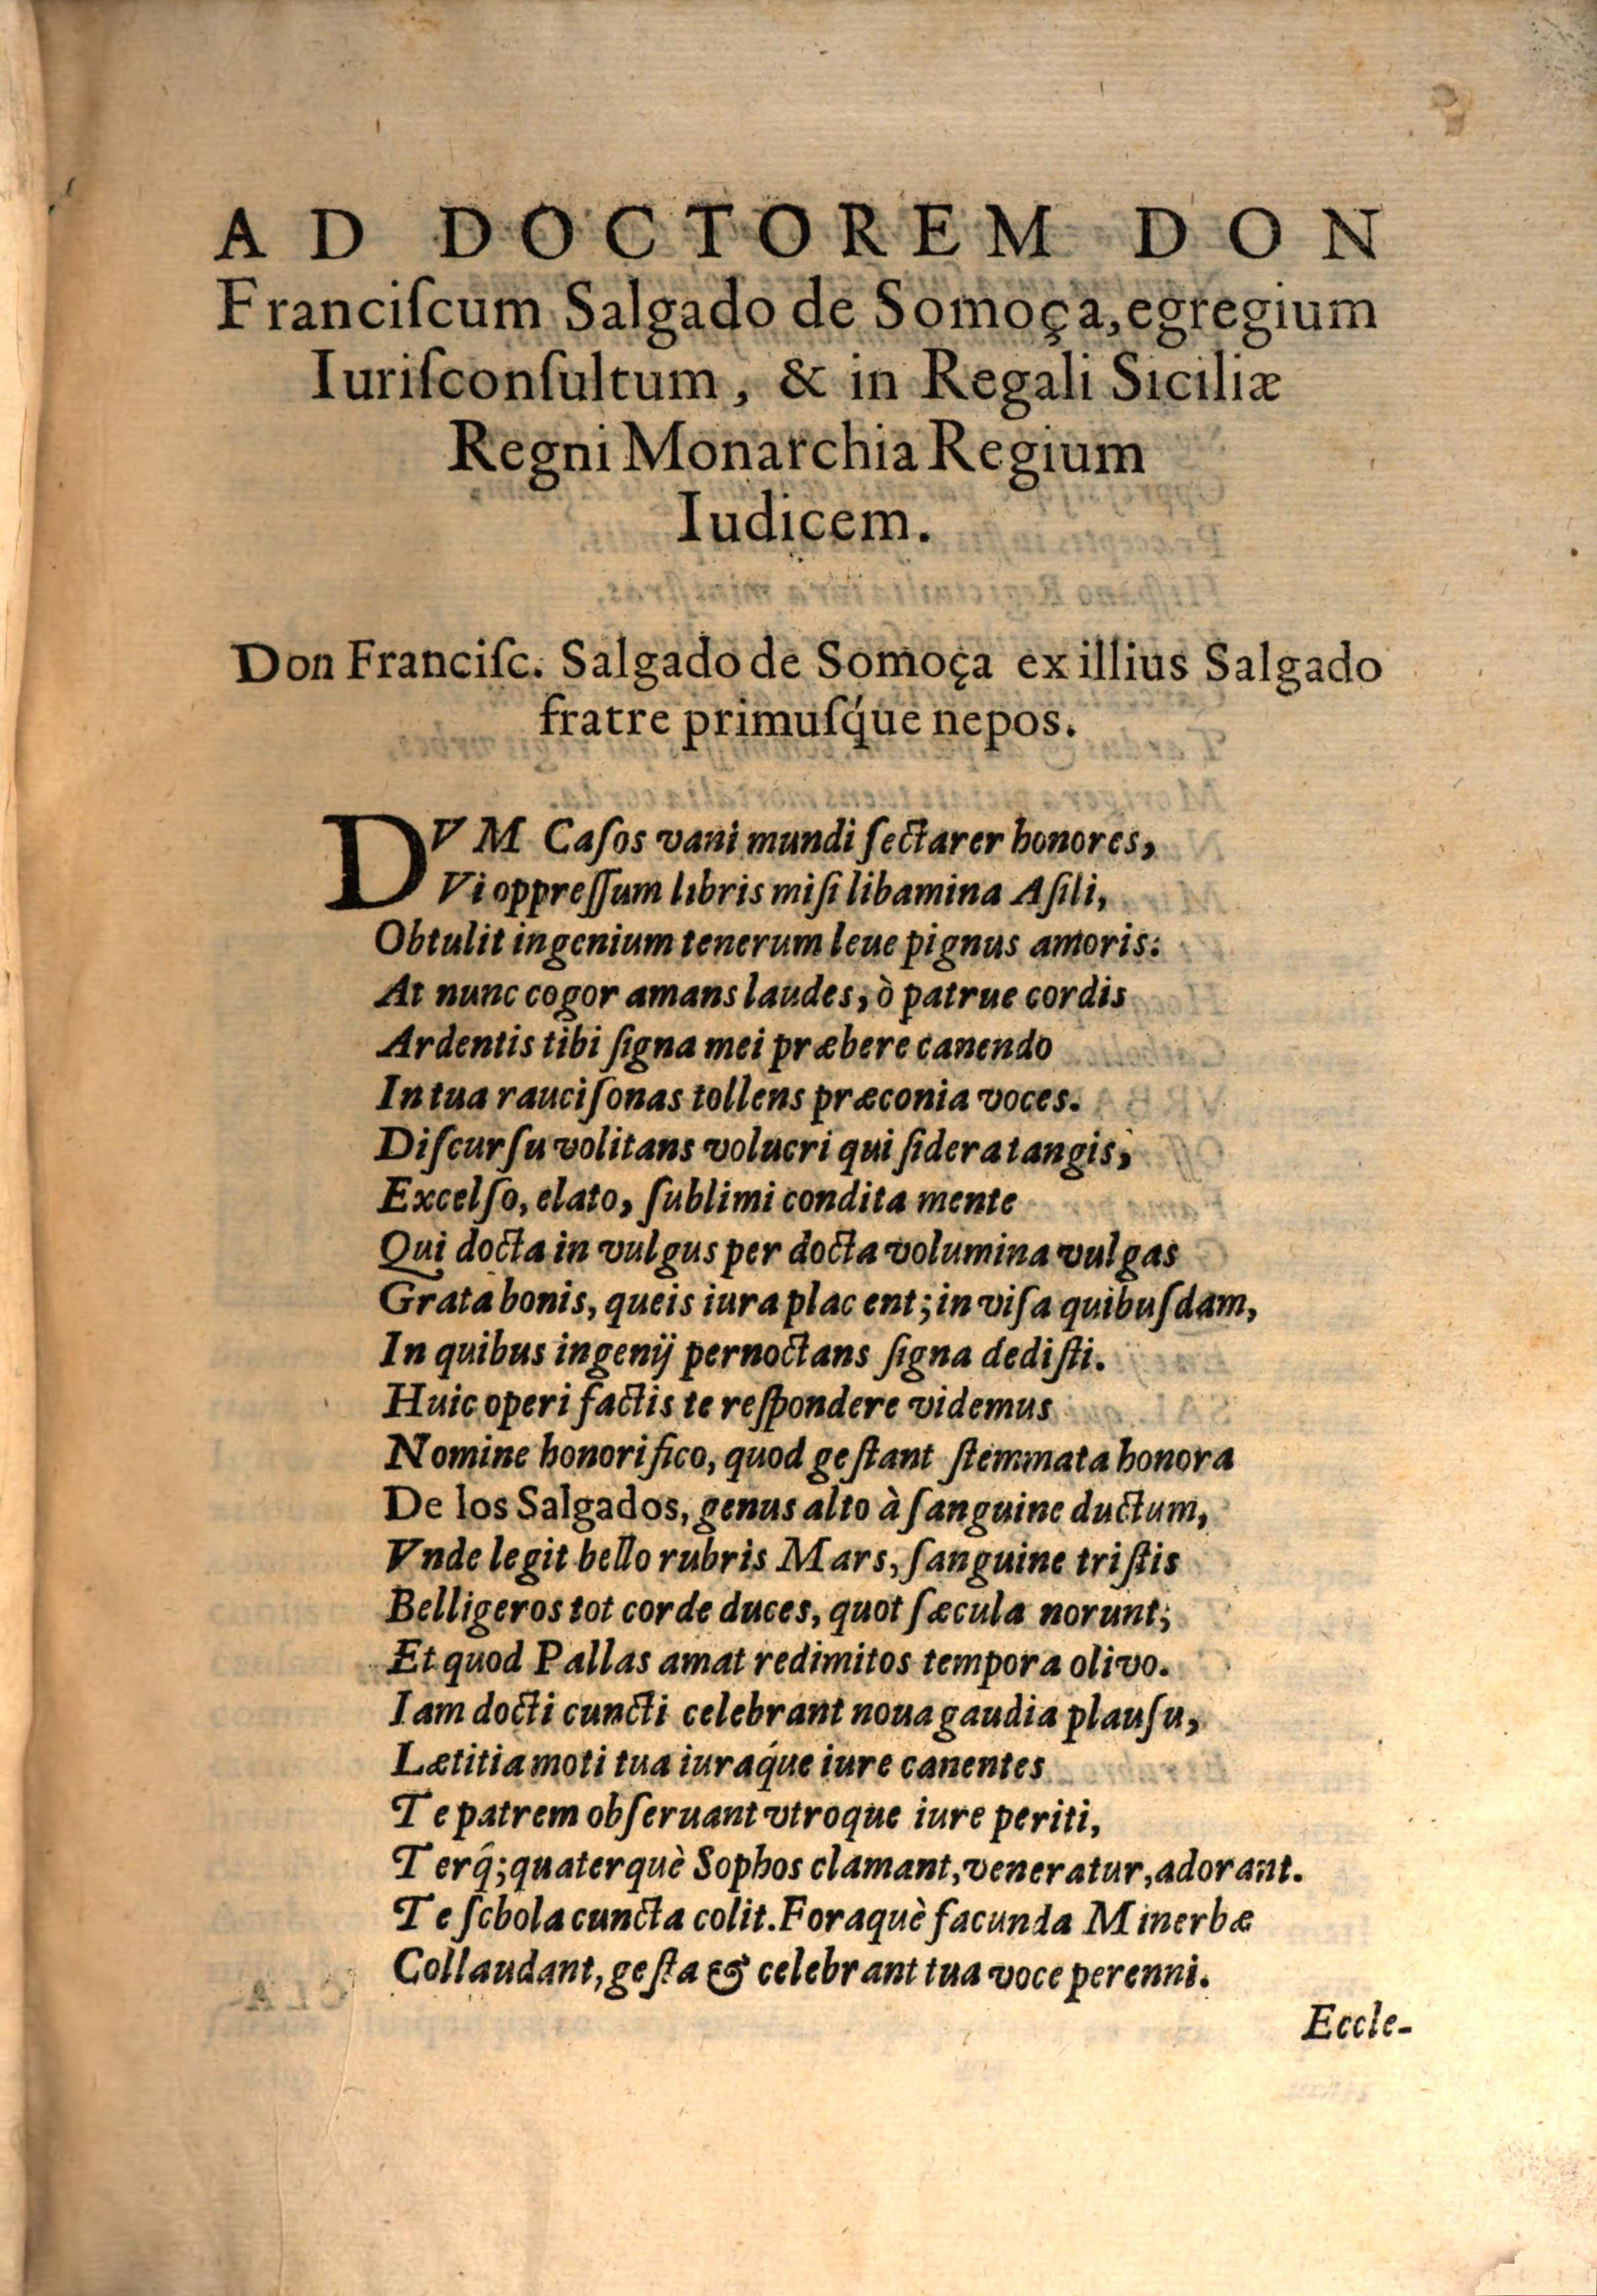 AD DOCTOREM DON
Franciſcum Salgado de Somoça, egregium
Iuriſconſultum, & in Regali Siciliæ
Regni Monarchia Regium
Iudicem.
Don Franciſc. Salgado de Somoça ex illius Salgado
fratre primuſq́ue nepos.
DVM Caſos vani mundi ſectarer honores,
Vi oppreſſum libris miſi libamina Aſili,
Obtulit ingenium tenerum leue pignus amoris:
At nunc cogor amans laudes, ò patrue cordis
Ardentis tibi ſigna mei præbere canendo
In tua rauciſonas tollens præconia voces.
Diſcurſu volitans volucri qui ſidera tangis,
Excelſo, elato, ſublimi condita mente
Qui docta in vulgus per docta volumina vulgas
Grata bonis, queis iura placent; inviſa quibuſdam,
In quibus ingenij pernoctans ſigna dediſti.
Huic operi factis te reſpondere videmus
Nomine honorifico, quod geſtant ſtemmata honora
De los Salgados, genus alto à ſanguine ductum,
Vnde legit bello rubris Mars, ſanguine triſtis
Belligeros tot corde duces, quot ſæcula norunt;
Et quod Pallas amat redimitos tempora olivo.
Iam docti cuncti celebrant noua gaudia plauſu,
Lætitia moti tua iuraq́ue iure canentes
Te patrem obſeruant vtroque iure periti,
Terq̃; quaterquè Sophos clamant, veneratur, adorant.
Te ſchola cuncta colit. Foraquè facunda Minerbæ
Collaudant, geſta & celebrant tua voce perenni.
Eccle-